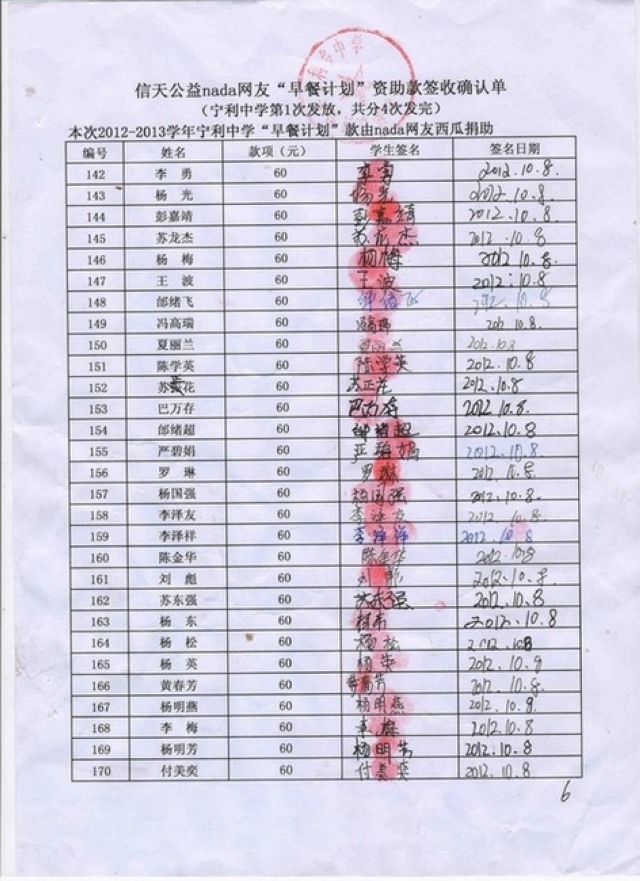 信天公益nada网友“早餐计划”资助款签收确认单
（宁利中学第1次发放，共分4次发完）
本次2012-2013学年宁利中学“早餐计划”款由nada网友西瓜捐助
编号 姓名 款项（元） 学生签名 签名日期
142 李勇 60 李勇 2012.10.8.
143 杨光 60 杨光 2012.10.8.
144 彭嘉靖 60 彭嘉靖 2012.10.8
145 苏龙杰 60 苏龙杰 2012.10.8
146 杨梅 60 杨梅 2012.10.8.
147 王波 60 王波 2012.10.8
148 邰绪飞 60 邰绪飞 2012.10.8
149 冯高瑞 60 冯高瑞 2012.10.8.
150 夏丽兰 60 夏丽兰 2012.10.8
151 陈学英 60 陈学英 2012.10.8
152 苏花 60 苏正花 2012.10.8
153 巴万存 60 巴万存 2012.10.8.
154 邰绪超 60 邰绪超 2012.10.8
155 严碧娟 60 严碧娟 2012.10.8
156 罗琳 60 罗琳 2012.10.8
157 杨国强 60 杨国强 2012.10.8
158 李泽友 60 李泽友 2012.10.8
159 李泽祥 60 李泽祥 2012.10.8
160 陈金华 60 陈金华 2012.10.8
161 刘彪 60 刘彪 2012.10.8
162 苏东强 60 苏东强 2012.10.8
163 杨东 60 杨东 2012.10.8
164 杨松 60 杨松 2012.10.8
165 杨英 60 杨英 2012.10.9
166 黄春芳 60 2012.10.8
167 杨明燕 60 杨明燕 2012.10.8
168 李梅 60 李梅 2012.10.8
169 杨明芳 60 杨明芳 2012.10.8
170 付美奕 60 付美奕 2012.10.8
6